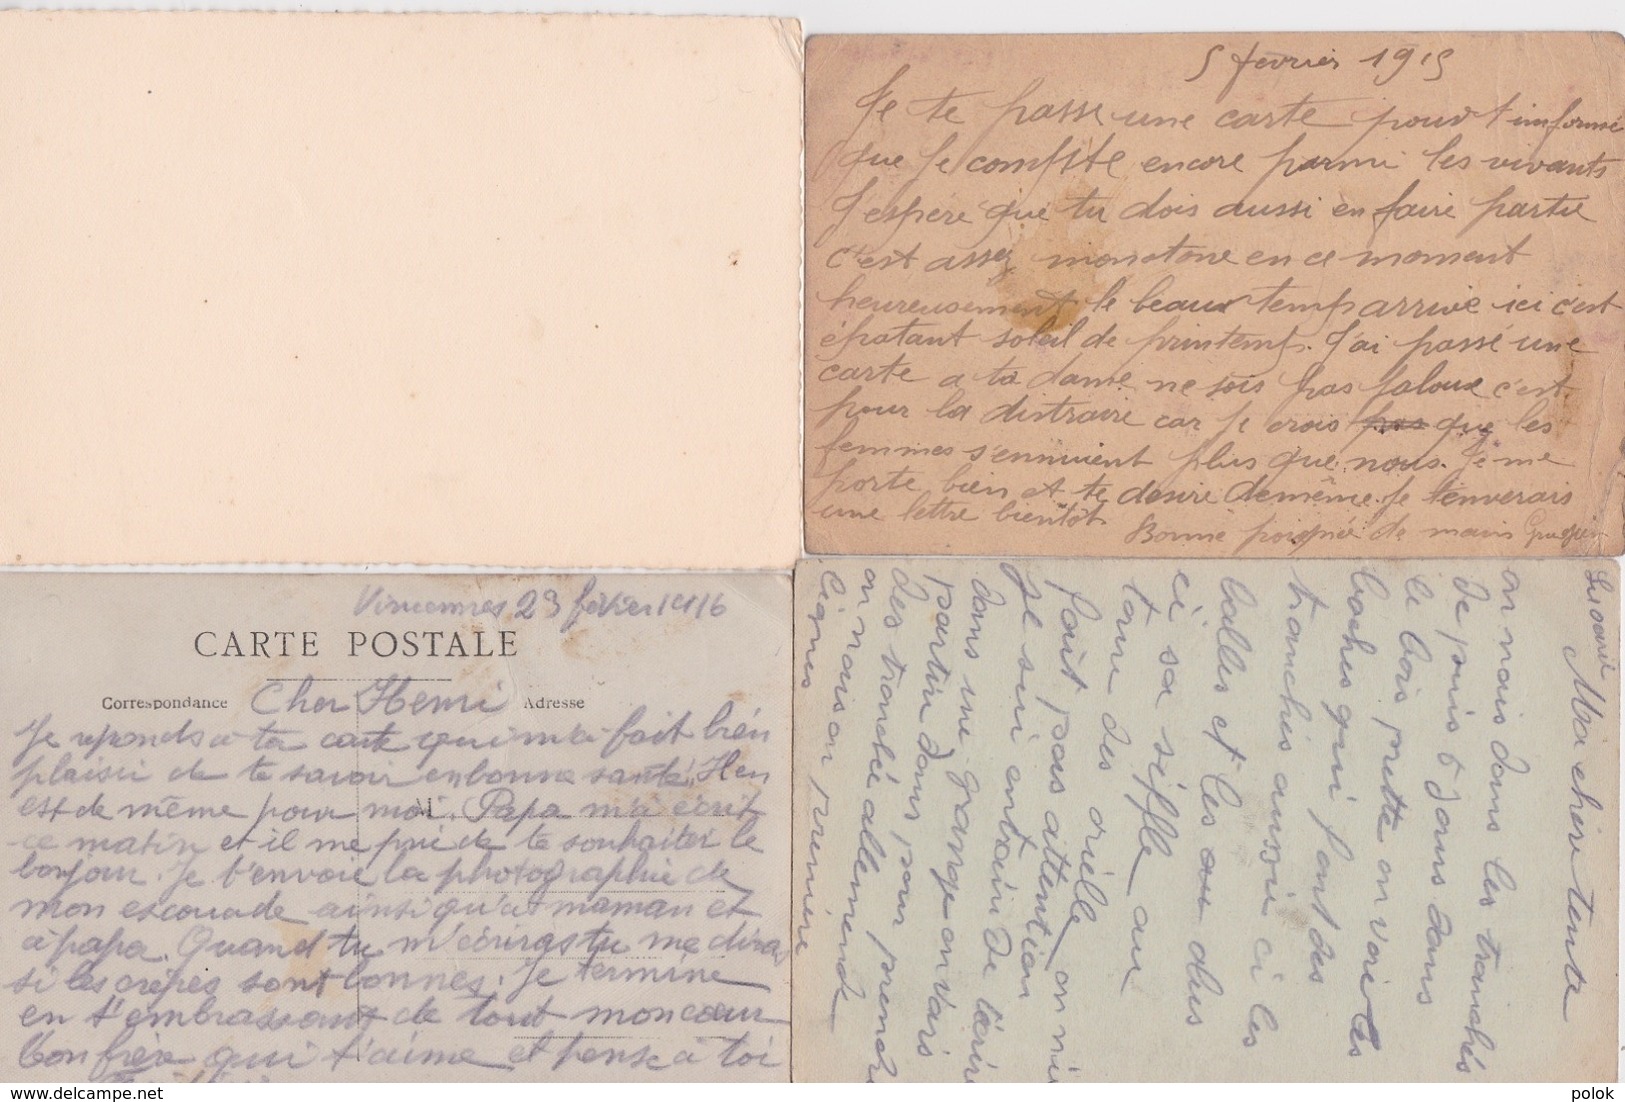 5 fevrier 1915
Je te passe une carte pour t'informé
que je compte encore parmi les vivants
J'espére que tu dois aussi en faire partie
c'est assez monotone en ce moment
heureusement le beau temp arrive ici c'est
épatant soleil de printemp. J'ai passé une
carte a ta dame ne sois pas jaloux c'est
pour la distraire car je crois pas que les
femmes s'ennuient plus que nous. Je me
porte bien et te desire de même. Je t'enverais
une lettre bientôt
Bonne poignée de main
Vincennes 23 février 1916
CARTE POSTALE
Correspondance
Adresse
Cher Henri
Je reponds a ta carte qui m'a fait bien
plaisir de te savoir en bonne santé. Il en
est de même pour moi. Papa m'a écrit
ce matin et il me prie de te souhaiter le
bonjour. Je t'envoie la photographie de
mon escouade ainsi qu'a maman et
a papa. Quand tu m'écriras tu me diras
si les crêpes sont bonnes. Je termine
en t'embrassant de tout mon cœur
Ton frère qui t'aime et pense à toi
Ma chere tente
on nais dans les tranchés
de puis 8 Jours dans
le bois prette on voie les
boches qui font des
tranchés aussie ci les
balles et les au bus
ci sa siffle au
tour des orielle
fait pas attention on ni
Je sui antrain de t'ecrire
dans une grange on vais
partir dans pour prendre
des tranché allemende
on nais on premiere
lignes
polok